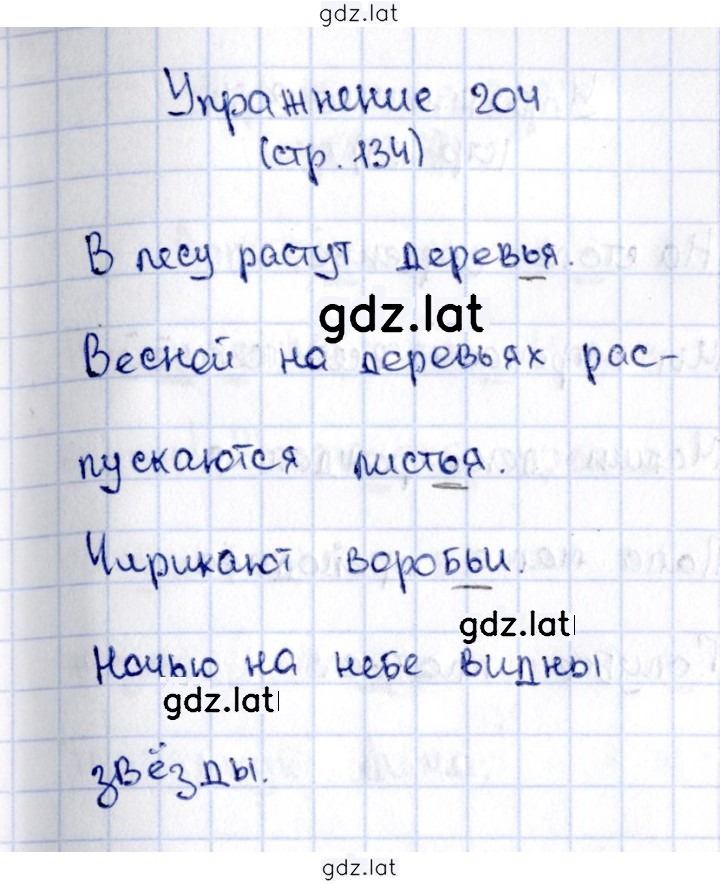 gdz.lat
Упражнение 204
(стр. 134)
В лесу растут деревья.
gdz.lat
Весной на деревьях рас-
пускаются листья.
Чирикают воробьи.
gdz.lat
Ночью на небе видны
gdz.lat
звёзды.
gdz.lat